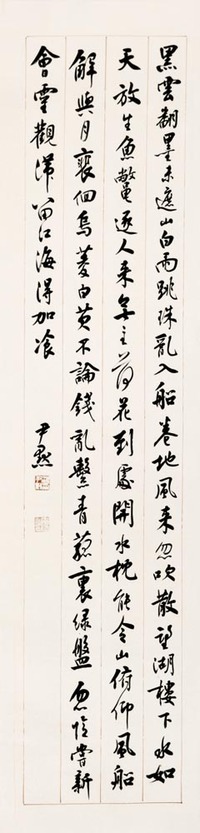 黑雲翻墨未遮山白雨跳珠亂入船卷地風來忽吹散望湖樓下水如
天放生魚鱉逐人來無主荷花到處開水枕能令山俯仰風船
解與月裵回烏菱白芡不論錢亂繫青菰裹綠盤忽憶嘗新
會靈觀滯留江海得加湌
尹默